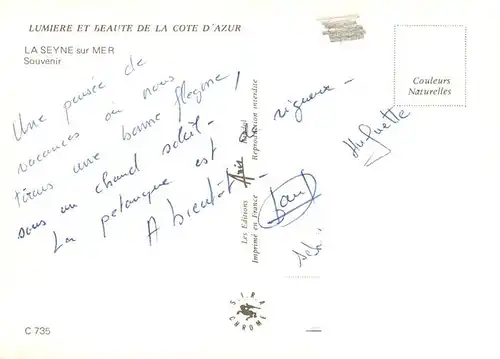 LUMIERE ET BEAUTE DE LA COTE D'AZUR
LA SEYNE sur MER
Souvenir
Une pensée de
vacances où nous
tirons une bonne flegme,
sous un chaud soleil-
La petanque est
A bientôt-
rigueur-
Huguette
Couleurs
Naturelles
Les Editions
Imprimé en France
Reproduction interdite
SIRA
CHROME
C 735